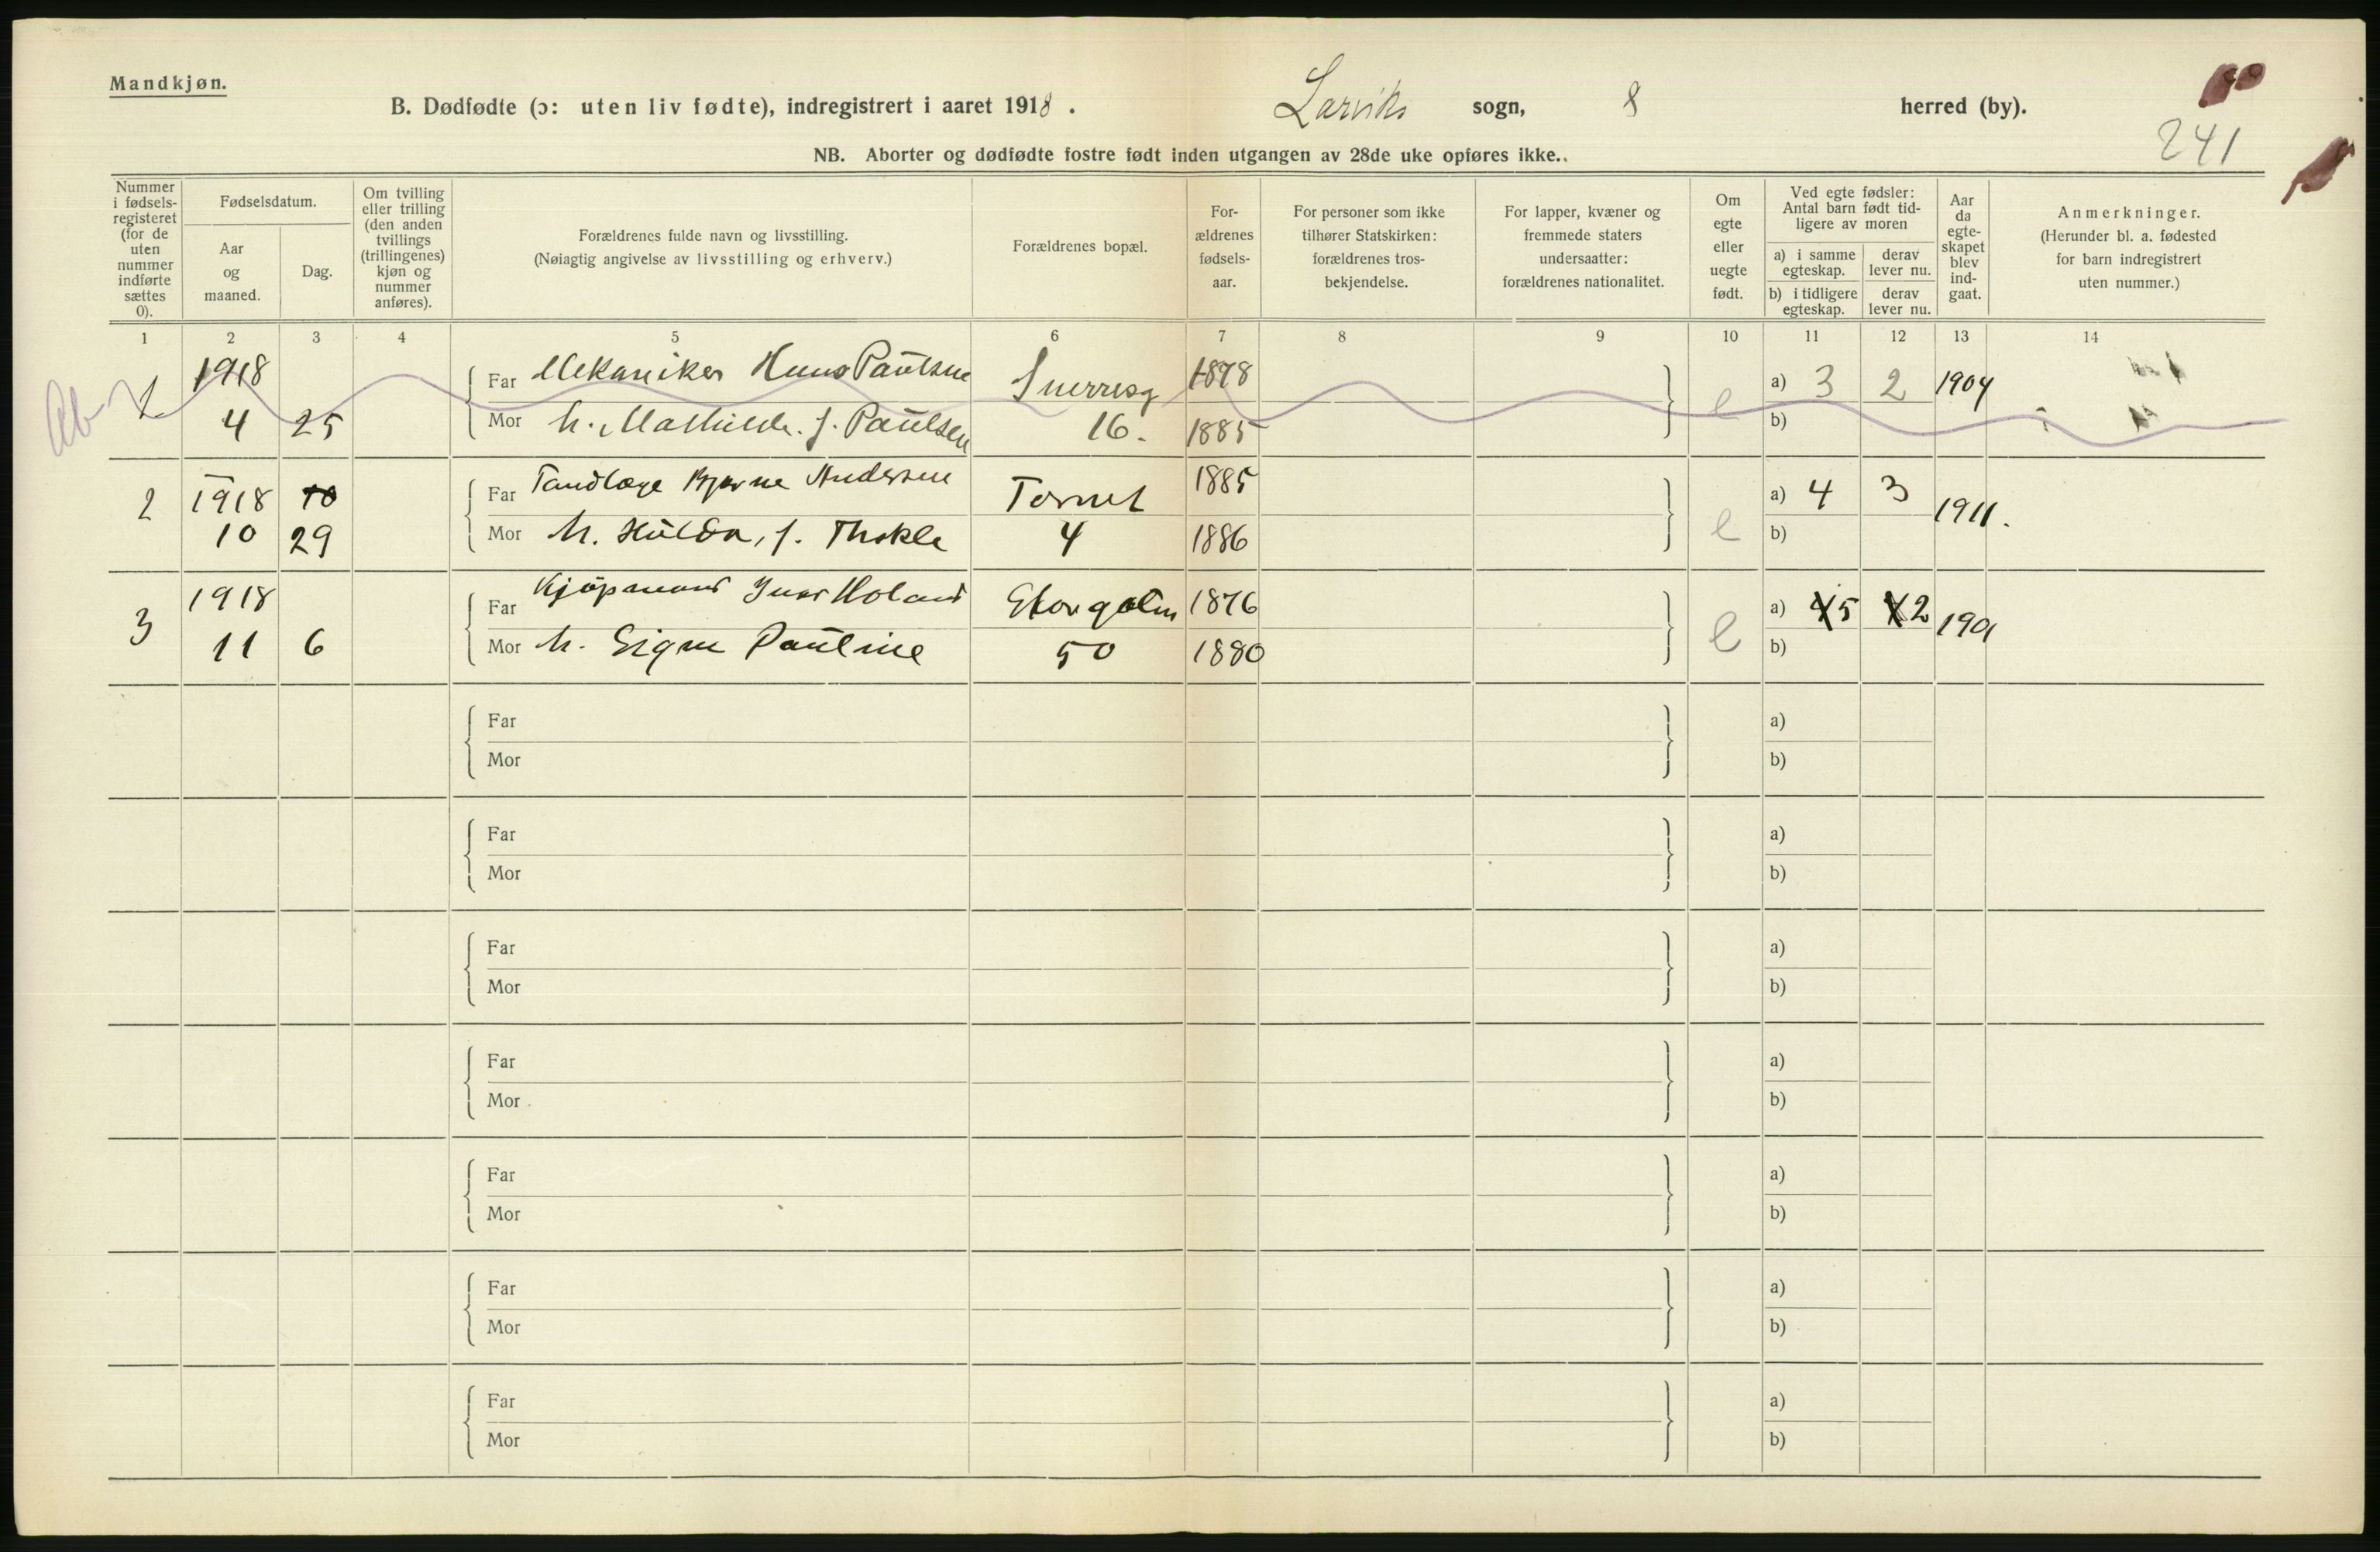 Mandkjøn.
B. Dødfødte (ɔ: uten liv fødte), indregistrert i aaret 1918. Larviks sogn, 8 herred (by).
241
NB. Aborter og dødfødte fostre født inden utgangen av 28de uke opføres ikke.
Nummer
i fødsels-
registeret
(for de
uten
nummer
indførte
sættes
0).
Fødselsdatum.
Aar
og
maaned.
Dag.
Om tvilling
eller trilling
(den anden
tvillings
(trillingenes)
kjøn og
nummer
anføres).
Forældrenes fulde navn og livsstilling.
(Nøiagtig angivelse av livsstilling og erhverv.)
Forældrenes bopæl.
For-
ældrenes
fødsels-
aar.
For personer som ikke
tilhører Statskirken:
forældrenes tros-
bekjendelse.
For lapper, kvæner og
fremmede staters
undersaatter:
forældrenes nationalitet.
Om
egte
eller
uegte
født.
Ved egte fødsler:
Antal barn født tid-
ligere av moren
a) i samme
egteskap.
derav
lever nu.
b) i tidligere
egteskap.
derav
lever nu.
Aar
da
egte-
skapet
blev
ind-
gaat.
Anmerkninger.
(Herunder bl. a. fødested
for barn indregistrert
uten nummer.)
1 2 3 4 5 6 7 8 9 10 11 12 13 14
Ab
1 1918 Far Mekaniker Hans Paulsen 1878 e a) 3 2 1904
4 25 Mor h. Mathilde f. Paulsen 16. 1885 b)
2 1918 10 Far Tandlæge Bjarne Andersen Tornet 1885 e a) 4 3 1911.
10 29 Mor h. Hulda, f. Thokle 4 1886 b)
3 1918 Far Kjøpmand Holand Storgaten 1876 e a) 5 2 1901
11 6 Mor h. Signe Pauline 50 1880 b)
Far a)
Mor b)
Far a)
Mor b)
Far a)
Mor b)
Far a)
Mor b)
Far a)
Mor b)
Far a)
Mor b)
Far a)
Mor b)